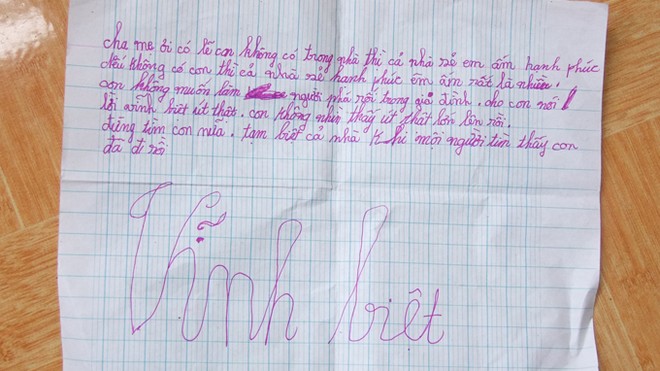 cha mẹ ơi có lẽ con không có trong nhà thì cả nhà sẻ em ấm hạnh phúc
nếu không có con thì cả nhà sẻ hạnh phúc êm ấm rất là nhiều.
con không muốn làm người phá rối trong gia đình. cho con nói 1
lời vĩnh biêt út thật. con không nhìn thấy út thật lớn lên rồi.
đừng tìm con nữa. tạm biêt cả nhà khi mõi người tìm thấy con
đã đi rồi
Vĩnh biêt